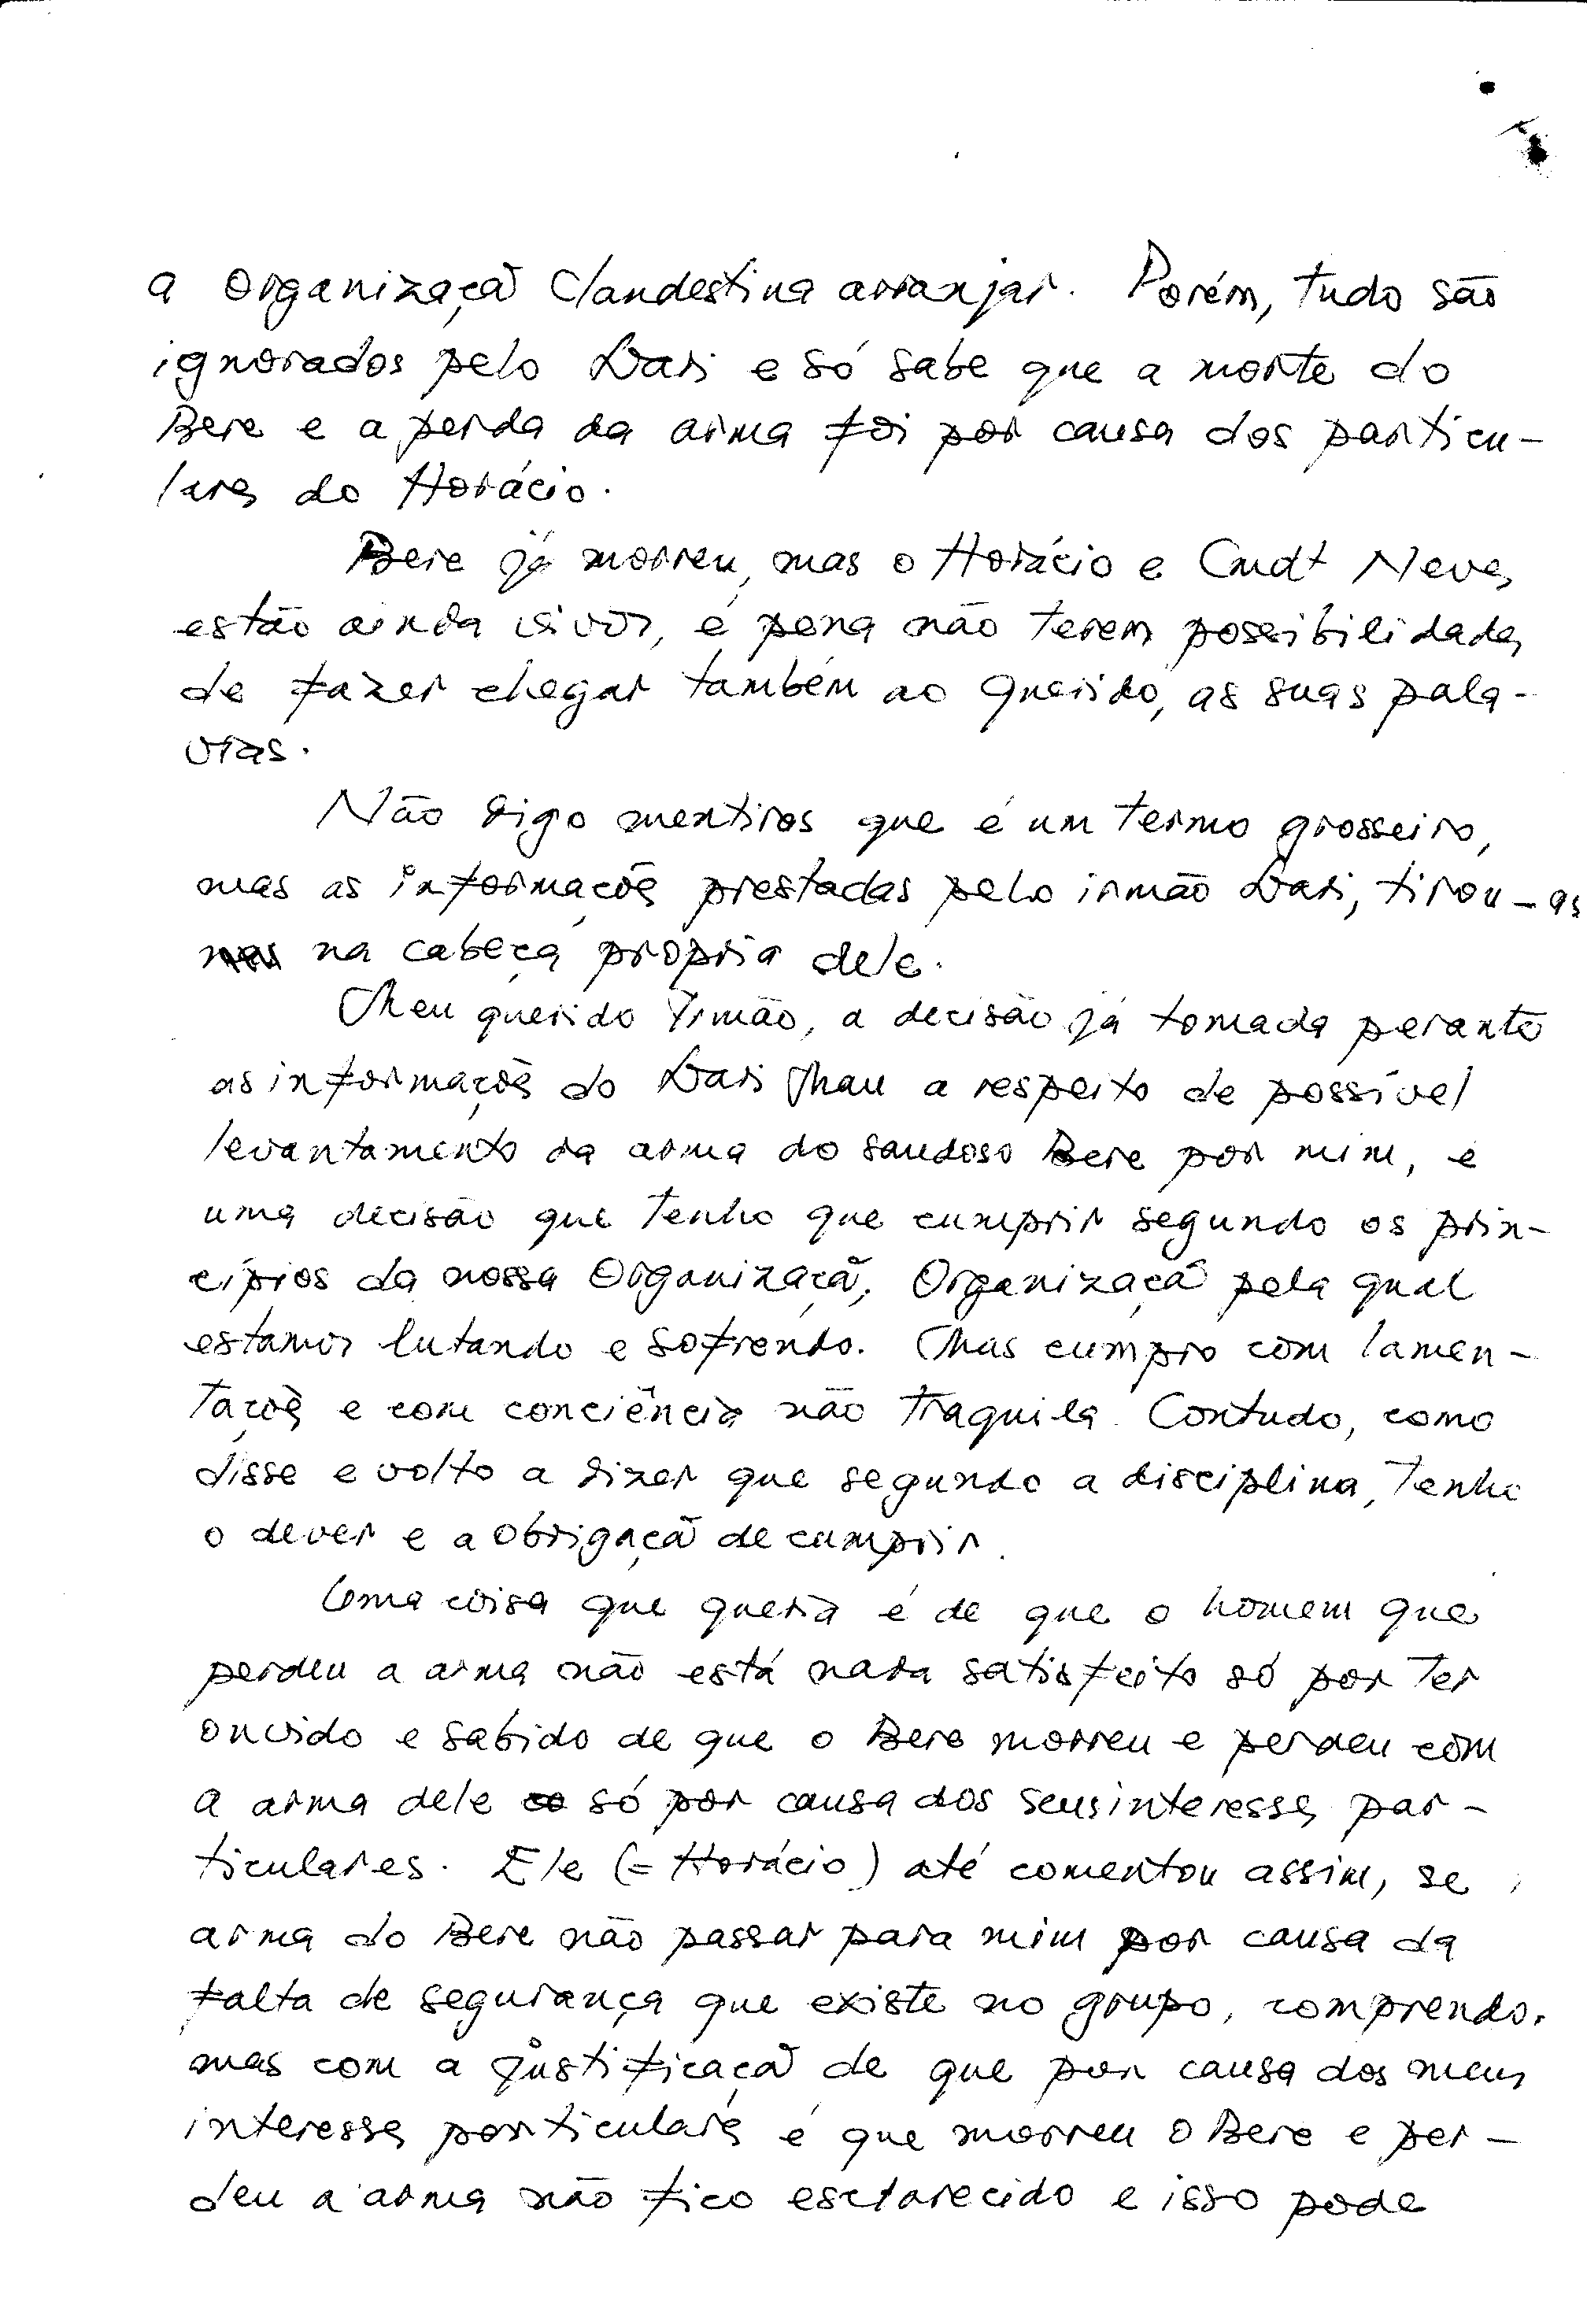 a Organização Clandestina arranjar. Porém, tudo são
ignorados pelo Dari e só sabe que a morte do
Bere e a perda da arma foi por causa dos particu-
lares do Horácio.
Bere já morreu, mas o Horácio e Cmdt Neves
estão ainda vivos, é pena não terem possibilidades
de fazer chegar também ao querido, as suas pala-
vras.
Não digo mentiras que é um termo grosseiro,
mas as informações prestadas pelo irmão Dari, tirou-as
na cabeça propria dele.
Meu querido Irmão, a decisão já tomada perante
as informações do Dari Mau a respeito de possível
levantamento da arma do saudoso Bere por mim, é
uma decisão que tenho que cumprir segundo os prin-
cípios da nossa Organização, Organização pela qual
estamos lutando e sofrendo. Mas cumpro com lamen-
tações e com conciência não traquila. Contudo, como
disse e volto a dizer que segundo a disciplina, tenho
o dever e a obrigação de cumprir.
Uma coisa que queria é de que o homem que
perdeu a arma não está nada satisfeito só por ter
ouvido e sabido de que o Bere morreu e perdeu com
a arma dele só por causa dos seus interesses par-
ticulares. Ele (= Horácio) até comentou assim, se
arma do Bere não passar para mim por causa da
falta de segurança que existe no grupo, comprendo,
mas com a justificação de que por causa dos meus
interesses particulares é que morreu o Bere e per-
deu a arma não fico esclarecido e isso pode